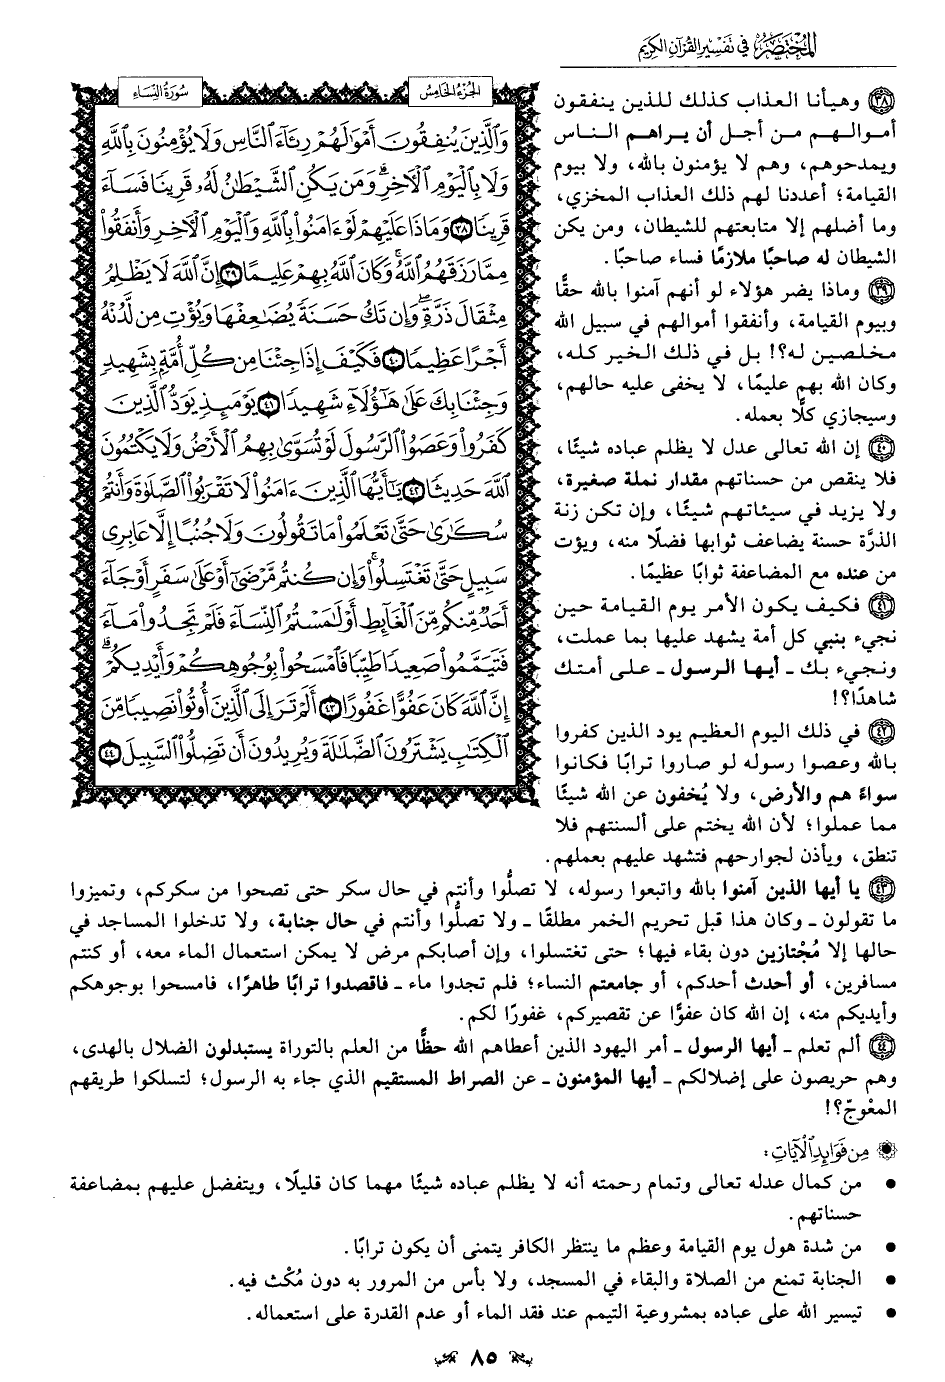 المختصر في تفسير القرآن الكريم
الجزء الخامس
سورة النساء
وَالَّذِينَ يُنفِقُونَ أَمْوَالَهُمْ رِئَاءَ النَّاسِ وَلَا يُؤْمِنُونَ بِاللَّهِ
وَلَا بِالْيَوْمِ الْآخِرِ وَمَن يَكُنِ الشَّيْطَانُ لَهُ قَرِينًا فَسَاءَ
قَرِينًا ٣٨ وَمَاذَا عَلَيْهِمْ لَوْ ءَامَنُوا بِاللَّهِ وَالْيَوْمِ الْآخِرِ وَأَنفَقُوا
مِمَّا رَزَقَهُمُ اللَّهُ وَكَانَ اللَّهُ بِهِمْ عَلِيمًا ٣٩ إِنَّ اللَّهَ لَا يَظْلِمُ
مِثْقَالَ ذَرَّةٍ وَإِن تَكُ حَسَنَةً يُضَاعِفْهَا وَيُؤْتِ مِن لَّدُنْهُ
أَجْرًا عَظِيمًا ٤٠ فَكَيْفَ إِذَا جِئْنَا مِن كُلِّ أُمَّةٍ بِشَهِيدٍ
وَجِئْنَا بِكَ عَلَىٰ هَٰؤُلَاءِ شَهِيدًا ٤١ يَوْمَئِذٍ يَوَدُّ الَّذِينَ
كَفَرُوا وَعَصَوُا الرَّسُولَ لَوْ تُسَوَّىٰ بِهِمُ الْأَرْضُ وَلَا يَكْتُمُونَ
اللَّهَ حَدِيثًا ٤٢ يَا أَيُّهَا الَّذِينَ ءَامَنُوا لَا تَقْرَبُوا الصَّلَوٰةَ وَأَنتُمْ
سُكَارَىٰ حَتَّىٰ تَعْلَمُوا مَا تَقُولُونَ وَلَا جُنُبًا إِلَّا عَابِرِي
سَبِيلٍ حَتَّىٰ تَغْتَسِلُوا وَإِن كُنتُم مَّرْضَىٰ أَوْ عَلَىٰ سَفَرٍ أَوْ جَاءَ
أَحَدٌ مِّنكُم مِّنَ الْغَائِطِ أَوْ لَامَسْتُمُ النِّسَاءَ فَلَمْ تَجِدُوا مَاءً
فَتَيَمَّمُوا صَعِيدًا طَيِّبًا فَامْسَحُوا بِوُجُوهِكُمْ وَأَيْدِيكُمْ
إِنَّ اللَّهَ كَانَ عَفُوًّا غَفُورًا ٤٣ أَلَمْ تَرَ إِلَى الَّذِينَ أُوتُوا نَصِيبًا مِّنَ
الْكِتَابِ يَشْتَرُونَ الضَّلَالَةَ وَيُرِيدُونَ أَن تَضِلُّوا السَّبِيلَ ٤٤
٣٨ وهيأنا العذاب كذلك للذين ينفقون
أموالهم من أجل أن يراهم الناس
ويمدحوهم، وهم لا يؤمنون بالله، ولا بيوم
القيامة؛ أعددنا لهم ذلك العذاب المخزي،
وما أضلهم إلا متابعتهم للشيطان، ومن يكن
الشيطان له صاحبًا ملازمًا فساء صاحبًا.
٣٩ وماذا يضر هؤلاء لو أنهم آمنوا بالله حقًّا
وبيوم القيامة، وأنفقوا أموالهم في سبيل الله
مخلصين له؟! بل في ذلك الخير كله،
وكان الله بهم عليمًا، لا يخفى عليه حالهم،
وسيجازي كلًّا بعمله.
٤٠ إن الله تعالى عدل لا يظلم عباده شيئًا،
فلا ينقص من حسناتهم مقدار نملة صغيرة،
ولا يزيد في سيئاتهم شيئًا، وإن تكن زنة
الذرَّة حسنة يضاعف ثوابها فضلًا منه، ويؤت
من عنده مع المضاعفة ثوابًا عظيمًا.
٤١ فكيف يكون الأمر يوم القيامة حين
نجيء بنبي كل أمة يشهد عليها بما عملت،
ونجيء بك ـ أيها الرسول ـ على أمتك
شاهدًا؟!
٤٢ في ذلك اليوم العظيم يود الذين كفروا
بالله وعصوا رسوله لو صاروا ترابًا فكانوا
سواءً هم والأرض، ولا يُخفون عن الله شيئًا
مما عملوا؛ لأن الله يختم على ألسنتهم فلا
تنطق، ويأذن لجوارحهم فتشهد عليهم بعملهم.
٤٣ يا أيها الذين آمنوا بالله واتبعوا رسوله، لا تصلُّوا وأنتم في حال سكر حتى تصحوا من سكركم، وتميزوا
ما تقولون ـ وكان هذا قبل تحريم الخمر مطلقًا ـ ولا تصلُّوا وأنتم في حال جنابة، ولا تدخلوا المساجد في
حالها إلا مُجْتازين دون بقاء فيها؛ حتى تغتسلوا، وإن أصابكم مرض لا يمكن استعمال الماء معه، أو كنتم
مسافرين، أو أحدث أحدكم، أو جامعتم النساء؛ فلم تجدوا ماء ـ فاقصدوا ترابًا طاهرًا، فامسحوا بوجوهكم
وأيديكم منه، إن الله كان عفوًّا عن تقصيركم، غفورًا لكم.
٤٤ ألم تعلم ـ أيها الرسول ـ أمر اليهود الذين أعطاهم الله حظًّا من العلم بالتوراة يستبدلون الضلال بالهدى،
وهم حريصون على إضلالكم ـ أيها المؤمنون ـ عن الصراط المستقيم الذي جاء به الرسول؛ لتسلكوا طريقهم
المعْوجّ؟!
من فوائد الآيات:
• من كمال عدله تعالى وتمام رحمته أنه لا يظلم عباده شيئًا مهما كان قليلًا، ويتفضل عليهم بمضاعفة
حسناتهم.
• من شدة هول يوم القيامة وعظم ما ينتظر الكافر يتمنى أن يكون ترابًا.
• الجنابة تمنع من الصلاة والبقاء في المسجد، ولا بأس من المرور به دون مُكْث فيه.
• تيسير الله على عباده بمشروعية التيمم عند فقد الماء أو عدم القدرة على استعماله.
٨٥